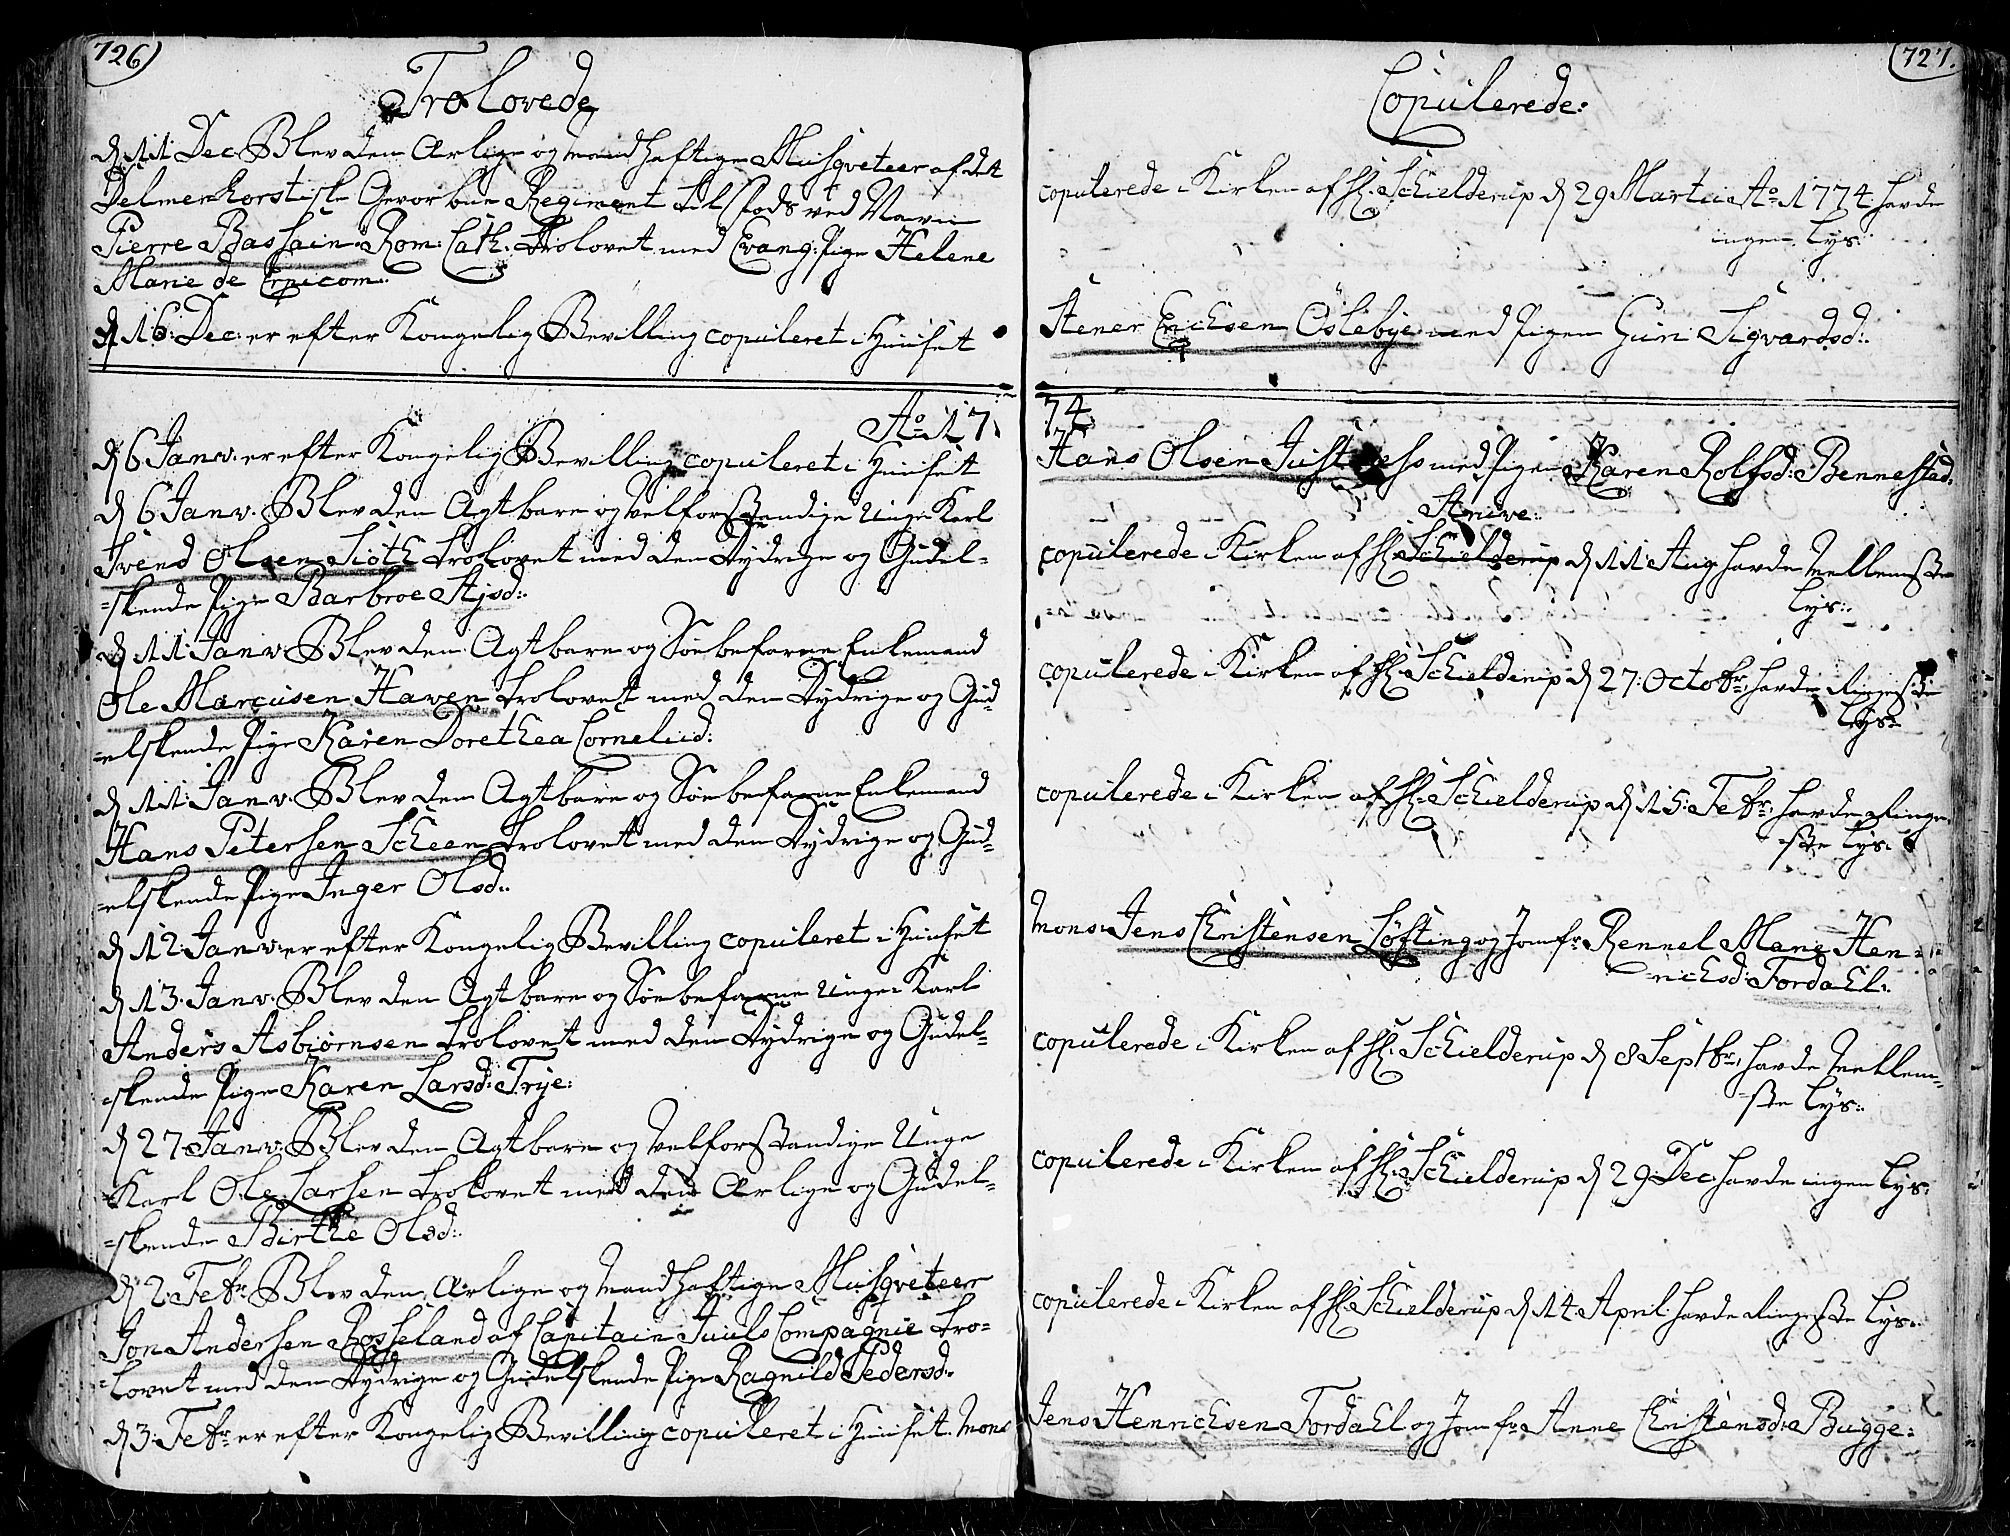 726)
Trolovede
d 11 Dec. Blev den Ærlige og Mandhaftige Musqveteer af det
Delmenhorstiske Gevorbne Regiment til Fods ved Navn
Pierre Bassain Rom: Cath: trolovet med Evang: Pige Helene
Marie de Ernicom:
d 16: Dec: er efter Kongelig Bevilling copuleret i Huuset
Ao 17
d 6 Janv: er efter Kongelig Bevilling copuleret i Huuset
d 6 Janv: Blev den Agtbare og Velforstandige Unge Karl
Svend Olsen Siöth trolovet med den Dydrige og Gudel-
-skende Pige Barbroe Aysd:
d 11 Janv: Blev den Agtbare og Söebefarne Enkemand
Ole Marcusen Haven trolovet med den Dydrige og Gud-
-elskende Pige Karen Dorethea Cornelisd:
d 11 Janv: Blev den Agtbare og Söebefarne Enkemand
Hans Petersen Scheen trolovet med den Dydrige og Gud-
-elskende Pige Inger Olsd:
d 12 Janv: er efter Kongelig Bevilling copuleret i Huuset
d 13 Janv: Blev den Agtbare og Söebefarne Unge Karl
Anders Asbiörnsen trolovet med den Dydrige og Gudel-
-skende Pige Karen Larsd: Trye:
d 27 Janv: Blev den Agtbare og Velforstandige Unge
Karl Ole Larsen trolovet med den Ærlige og Gudel-
-skende Birthe Olsd:
d 2 Febr: Blev den Ærlige og Mandhaftige Musqveteer
Jon Andersen Rosseland af Capitain Juuls Compagnie tro-
-lovet med den Dydrige og Gudelskende Pige Ragnild Pedersd:
d 3: Febr: er efter Kongelig Bevilling copuleret i Huuset Mons
727.
Copulerede:
copulerede i Kirken af H: Schielderup d 29 Martii Ao 1774 havde
ingen Lys:
Stener Erichsen Oslebye med Pigen Guri Sigvardsd:
74
Hans Olsen med Pigen Karen Rolfsd: Bennestad.
Struwe:
copulerede i Kirken af H: Schielderup d 11 Aug: havde Mellemste
Lys:
copulerede i Kirken af H: Schielderup d 27: Octobr: havde Ringeste
Lys:
copulerede i Kirken af H: Schielderup d 15: Febr: havde Ringe-
-ste Lys:
Mons: Jens Christensen Löfting og Jomfr: Rennel Marie Hen-
-richsd: Fordahl:
copulerede i Kirken af H: Schielderup d 8 Septbr: havde Mellem-
-ste Lys:
copulerede i Kirken af H: Schielderup d 29 Dec: havde ingen Lys:
copulerede i Kirken af H: Schielderup d 14 April havde Ringeste Lys:
Jens Henrichsen Fordahl og Jomfr: Anne Christensd: Bugge: